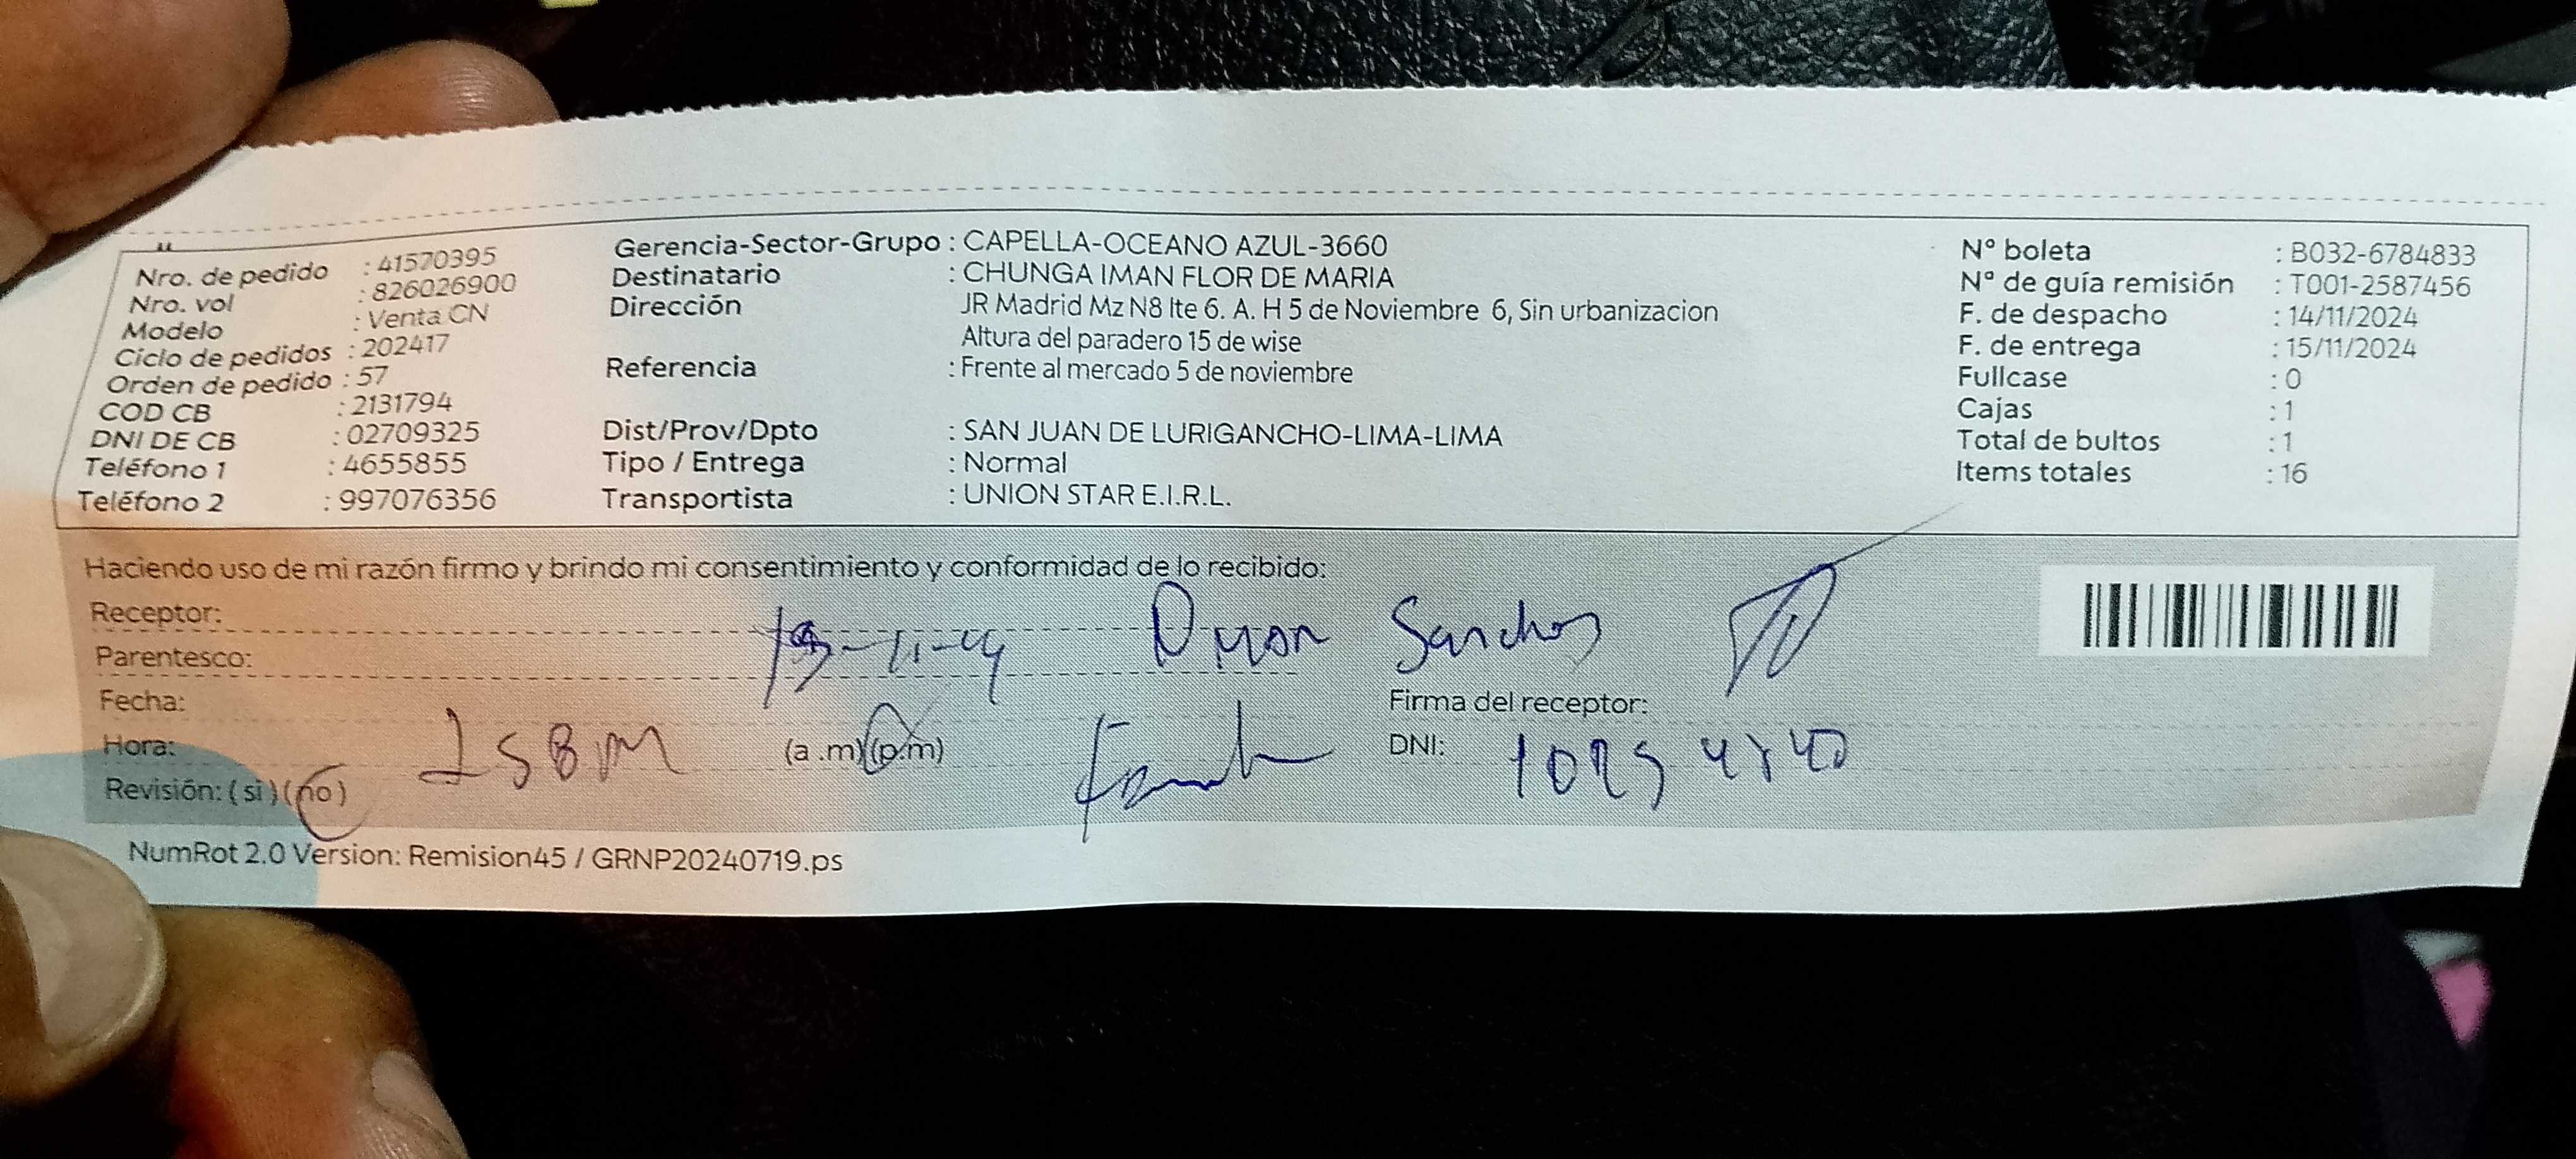 Nro. de pedido : 41570395
Nro. vol : 826026900
Modelo : Venta CN
Ciclo de pedidos : 202417
Orden de pedido : 57
COD CB : 2131794
DNI DE CB : 02709325
Teléfono 1 : 4655855
Teléfono 2 : 997076356
Gerencia-Sector-Grupo : CAPELLA-OCEANO AZUL-3660
Destinatario : CHUNGA IMAN FLOR DE MARIA
Dirección JR Madrid Mz N8 lte 6. A. H 5 de Noviembre 6, Sin urbanizacion
Altura del paradero 15 de wise
Referencia : Frente al mercado 5 de noviembre
Dist/Prov/Dpto : SAN JUAN DE LURIGANCHO-LIMA-LIMA
Tipo / Entrega : Normal
Transportista : UNION STAR E.I.R.L.
Nº boleta : B032-6784833
Nº de guía remisión : T001-2587456
F. de despacho : 14/11/2024
F. de entrega : 15/11/2024
Fullcase : 0
Cajas : 1
Total de bultos : 1
Items totales : 16
Haciendo uso de mi razón firmo y brindo mi consentimiento y conformidad de lo recibido:
Receptor:
Parentesco:
Fecha:
Firma del receptor:
Hora: (a .m)(p.m)
DNI:
Revisión: ( si ) ( no )
NumRot 2.0 Version: Remision45 / GRNP20240719.ps